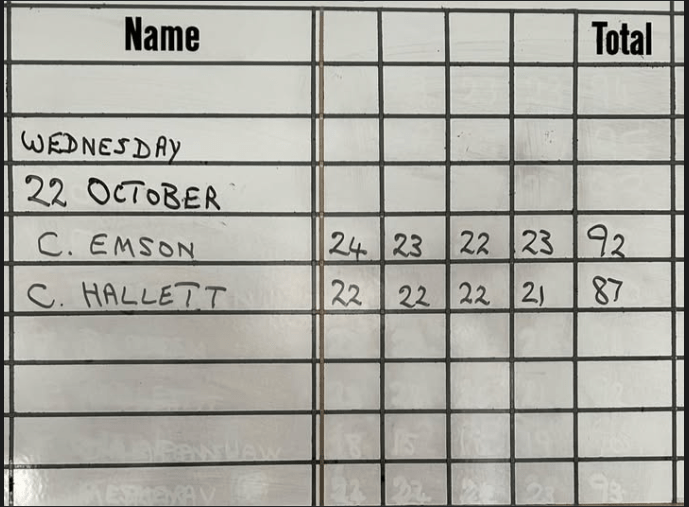 Name Total
WEDNESDAY
22 OCTOBER
C. EMSON 24 23 22 23 92
C. HALLETT 22 22 22 21 87